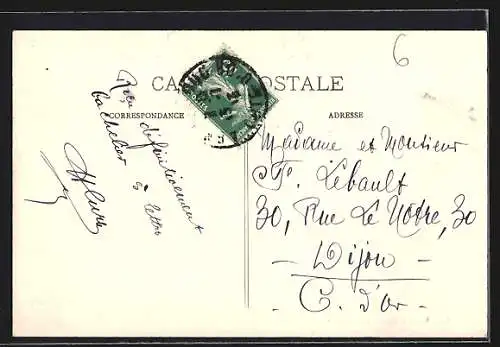 6
CARTE POSTALE
CORRESPONDANCE
ADRESSE
Reçu définitivement
bachelier
5 lettres
Madame et Monsieur
F. Lébault
30, Rue Le Nôtre, 30
- Dijon -
- C. d'or -